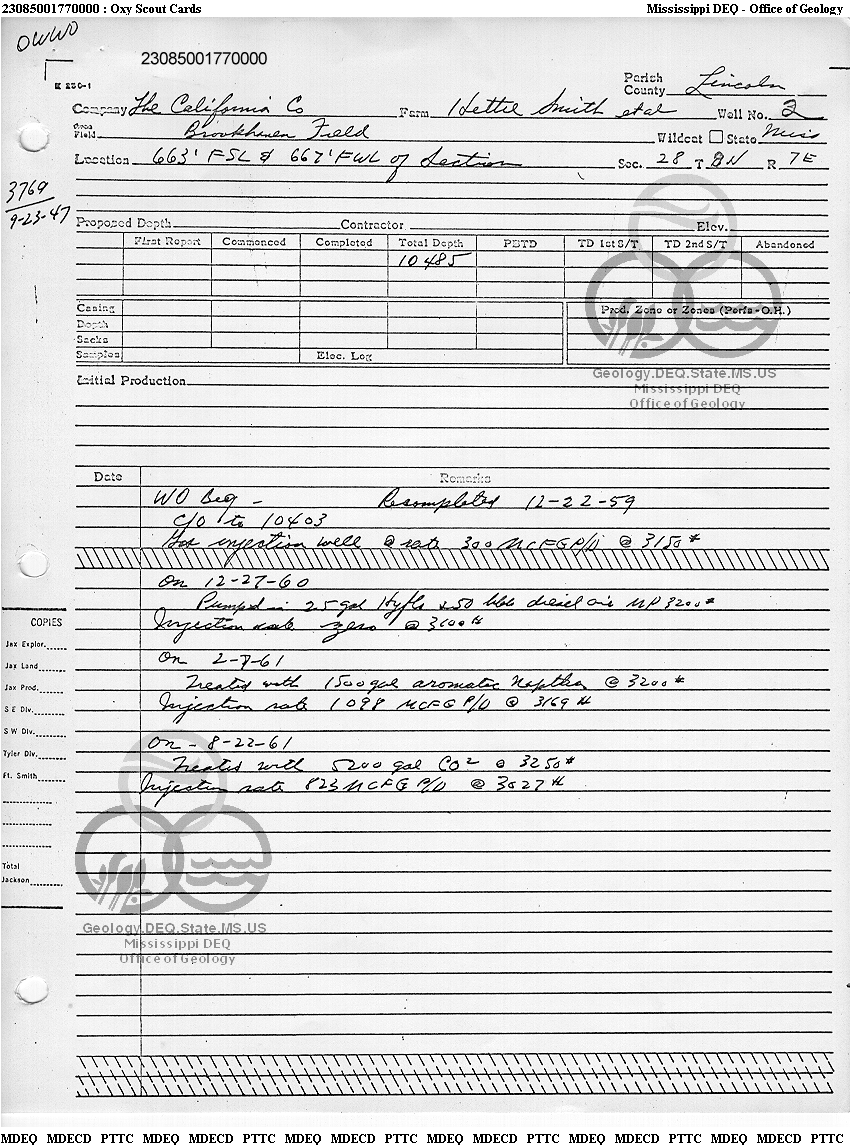 23085001770000 : Oxy Scout Cards Mississippi DEQ - Office of Geology
OWWO
23085001770000
E 250-1
Parish
County Lincoln
Company The California Co Farm Hettie Smith et al Well No. 2
Area
Field Brookhaven Field Wildcat State Miss
Location 663' FSL & 667' FWL of Section Sec. 28 T 8N R 7E
3769
9-23-47
Proposed Depth Contractor Elev.
First Report Commenced Completed Total Depth PBTD TD 1st S/T TD 2nd S/T Abandoned
10485
Casing Prod. Zone or Zones (Perfs-O.H.)
Depth
Sacks
Samples Elec. Log
Geology.DEQ.State.MS.US
Mississippi DEQ
Office of Geology
Initial Production
Date Remarks
WO Beg - Recompleted 12-22-59
C/O to 10403
Gas injection well @ rate 300 MCFGP/D @ 3150#
On 12-27-60
Pumped in 25 gal Hyflo 50 bbls diesel MP 3200#
Injection rate zero @ 3100#
COPIES
Jax Explor.
On 2-7-61
Jax Land
Treated with 1500 gal aromatic Naptha @ 3200#
Jax Prod.
Injection rate 1098 MCFGP/D @ 3169#
S E Div.
S W Div.
On - 8-22-61
Tyler Div.
Treated with 5200 gal CO2 @ 3250#
Ft. Smith
Injection rate 823 MCFG P/D @ 3027#
Total
Jackson
Geology.DEQ.State.MS.US
Mississippi DEQ
Office of Geology
MDEQ MDECD PTTC MDEQ MDECD PTTC MDEQ MDECD PTTC MDEQ MDECD PTTC MDEQ MDECD PTTC MDEQ MDECD PTTC